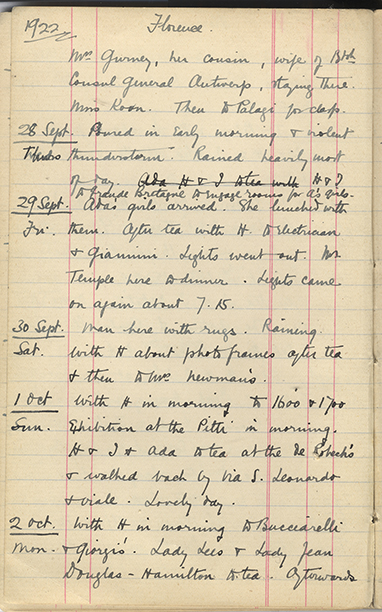 1922. Florence.
Mrs Gurney, her cousin, wife of Btsh
Consul General Antwerp, staying there.
Miss Koon. Then to Palagi for clasp.
28 Sept. Poured in early morning & violent
Thurs thunderstorm. Rained heavily most
of day. Ada H & I to tea with H & I
to Grande Bretagne to engage rooms for A's girls.
29 Sept. Ada's girls arrived. She lunched with
Fri. them. After tea with H to Electrician
& Giannini. Lights went out. Mr
Temple here to dinner. Lights came
on again about 7.15.
30 Sept. Man here with rugs. Raining.
Sat. With H about photo frames after tea
& then to Mrs Newman's.
1 Oct With H in morning to 1600 & 1700
Sun. Exhibition at the Pitti in morning.
H & I & Ada to tea at the De Robeck's
& walked back by Via S. Leonardo
& viale. Lovely day.
2 Oct. With H in morning to Bucciarelli
Mon. & Giorgis'. Lady Lees & Lady Jean
Douglas-Hamilton to tea. Afterwards